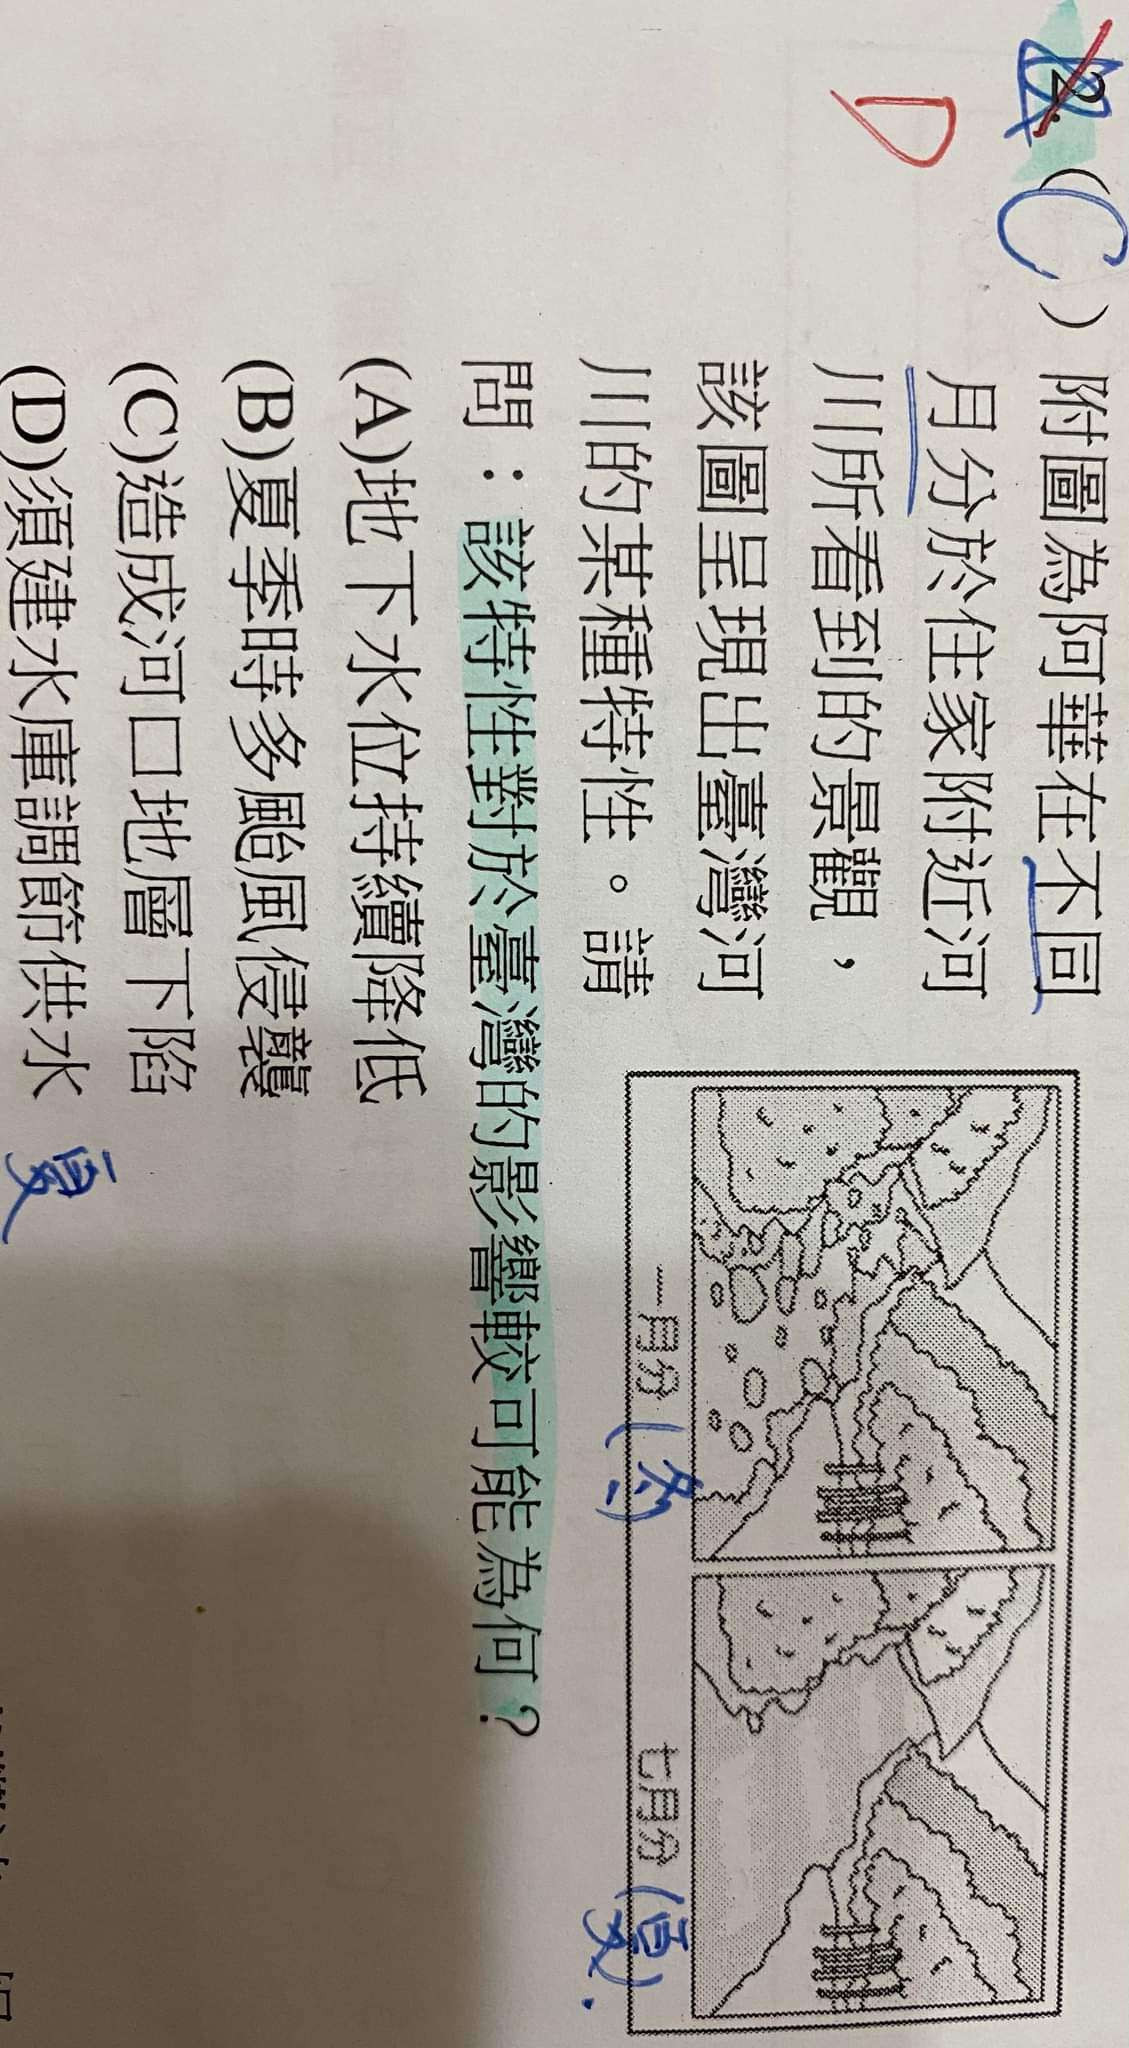 2. ( C ) 附圖為阿華在不同
D
月分於住家附近河
川所看到的景觀，
該圖呈現出臺灣河
川的某種特性。請
問：該特性對於臺灣的影響較可能為何？
(A)地下水位持續降低
(B)夏季時多颱風侵襲
(C)造成河口地層下陷
(D)須建水庫調節供水
一月分 (冬)
七月分 (夏).
夏